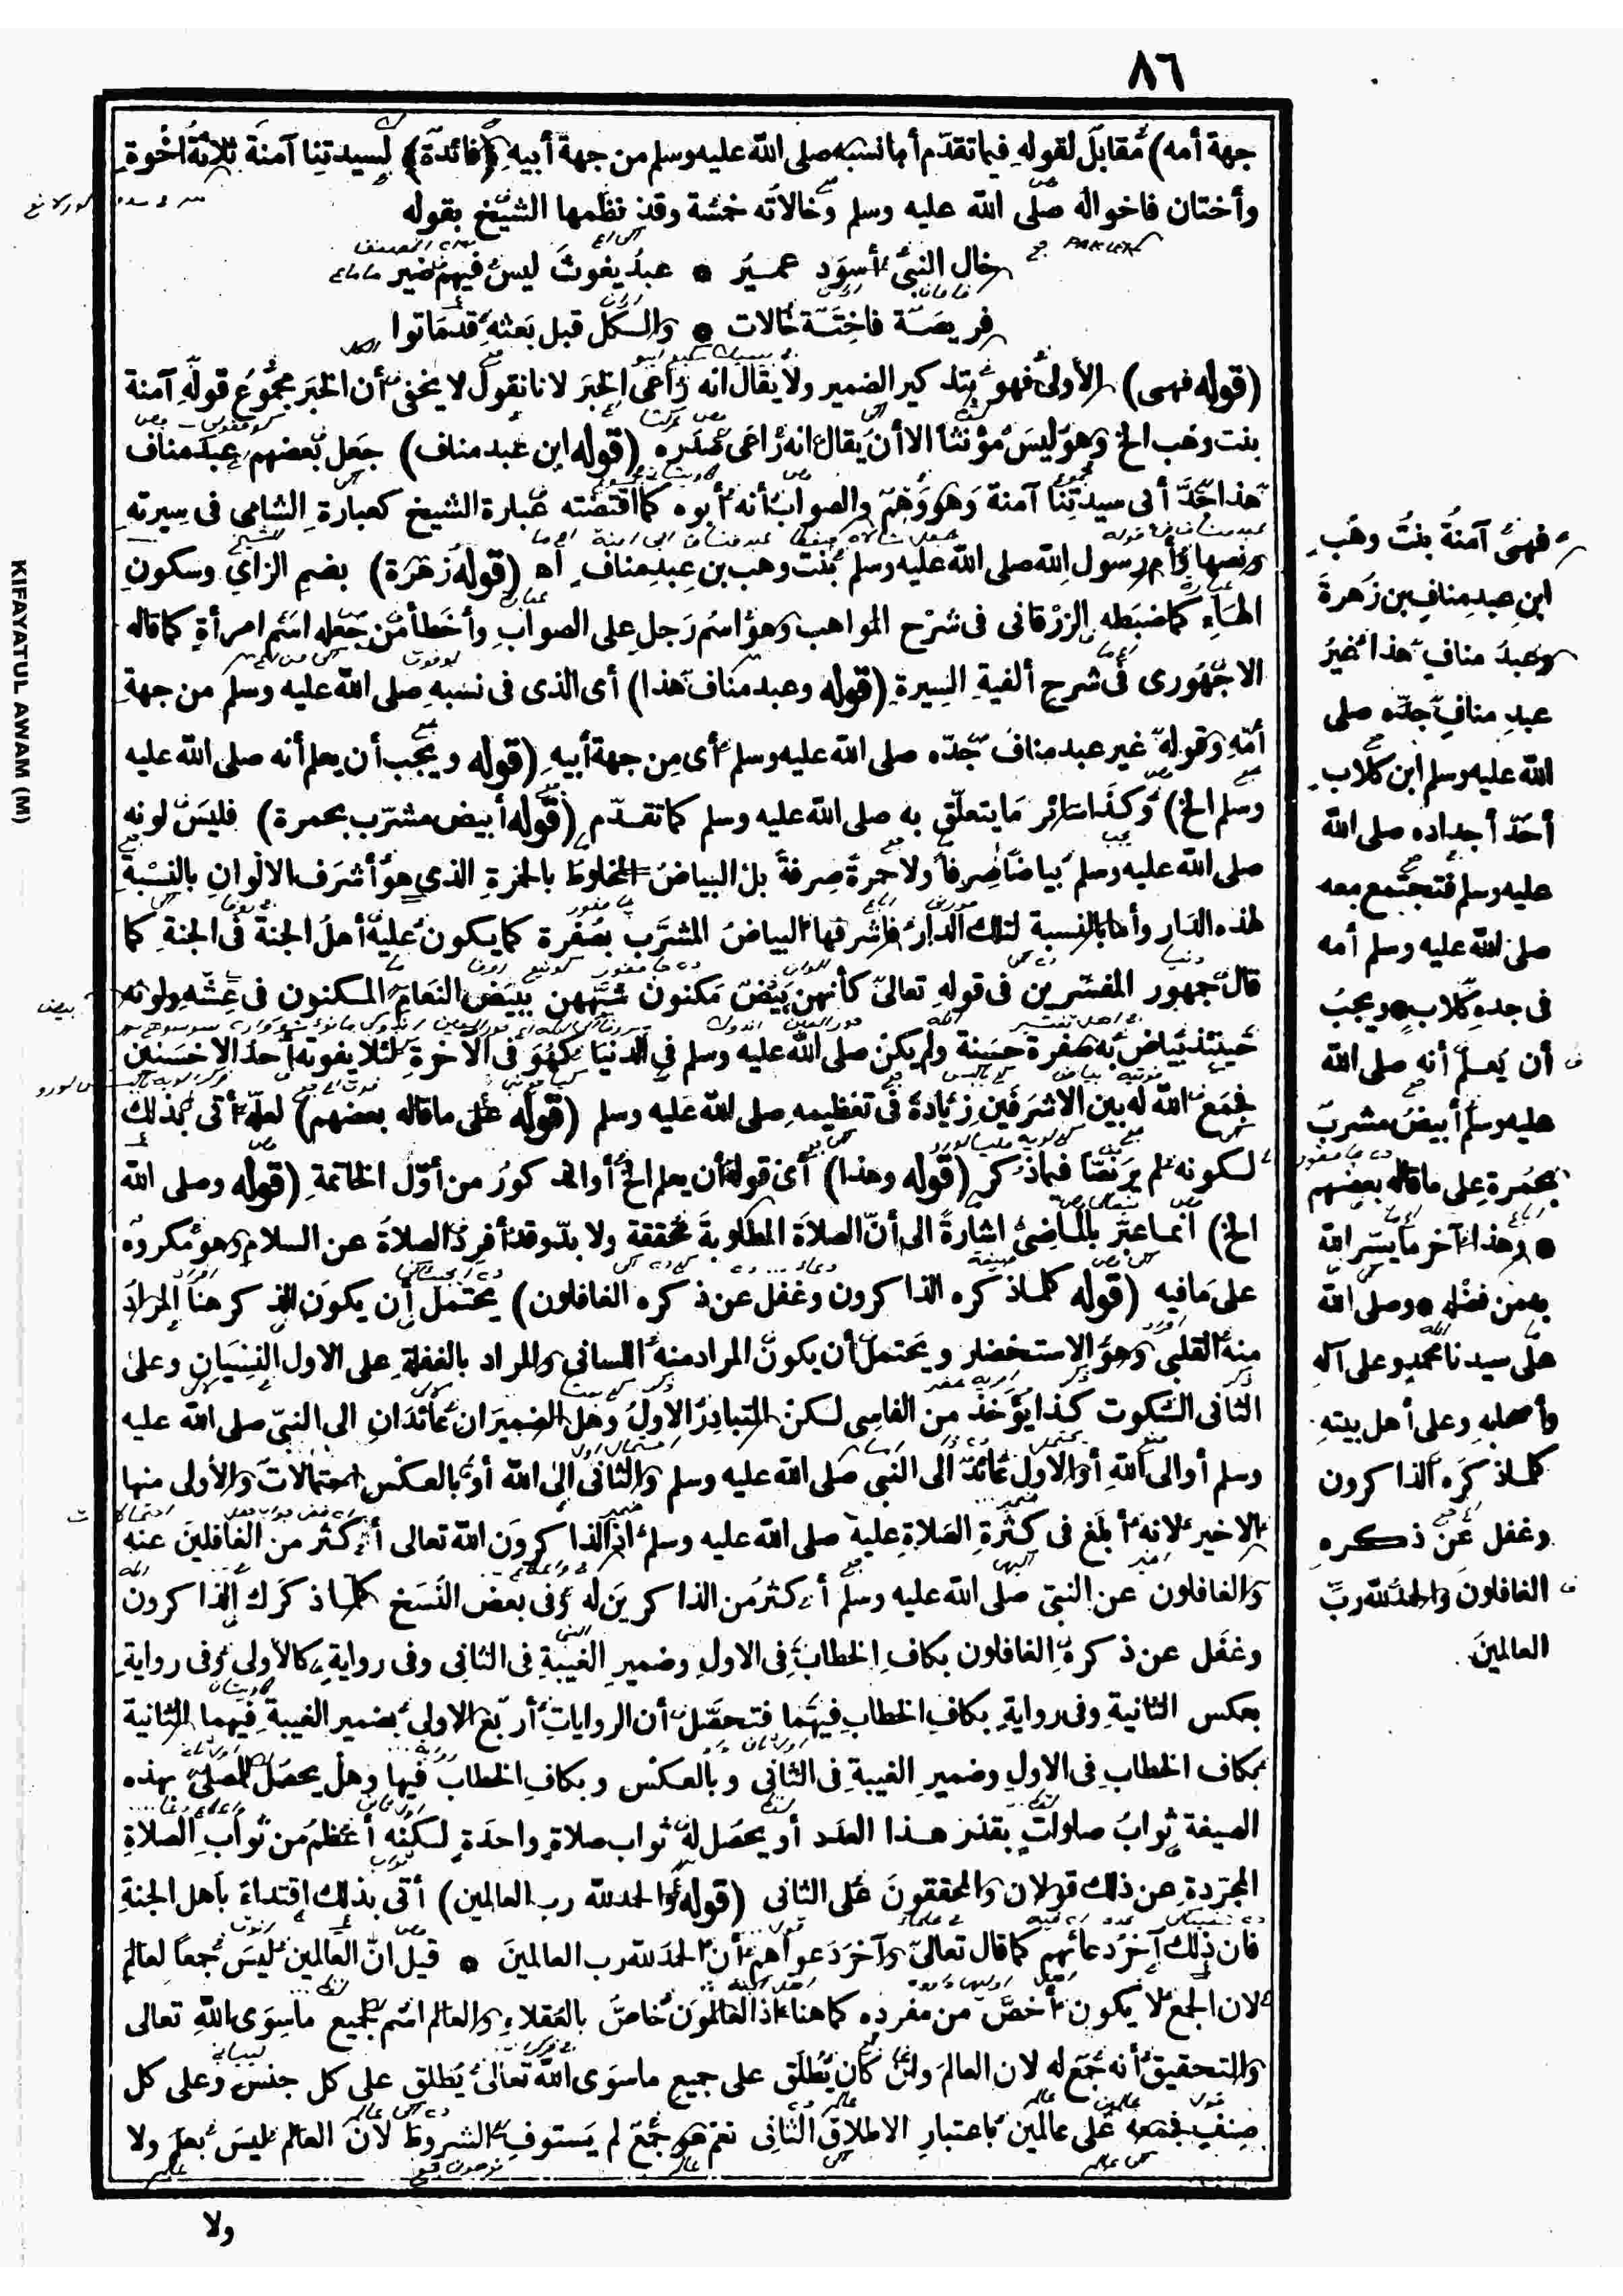 ٨٦
جهة أمه) مقابل لقوله فيما تقدّم أما نسبه صلى الله عليه وسلم من جهة أبيه (فائدة) لسيدتنا آمنة ثلاثة اخوة
وأختان فاخواله صلى الله عليه وسلم وخالاته خمسة وقد نظمها الشيخ بقوله
خال النبي أسود عمير * عبد يغوث ليس فيهم ضير
فريصة فاختة خالات * والكل قبل بعثه قد ماتوا
(قوله فهى) الأولى فهو بتذكير الضمير ولا يقال انه راعى الخبر لانا نقول لا يخفى أن الخبر مجموع قوله آمنة
بنت وهب الخ وهو ليس مؤنثا الا أن يقال انه راعى صدره (قوله ابن عبد مناف) جعل بعضهم عبد مناف
هذا جد أبى سيدتنا آمنة وهو وهم والصواب أنه أبوه كما اقتضته عبارة الشيخ كعبارة الشامى فى سيرته
ونصها وأم رسول الله صلى الله عليه وسلم بنت وهب بن عبد مناف اه (قوله زهرة) بضم الزاى وسكون
الهاء كما ضبطه الزرقانى فى شرح المواهب وهو اسم رجل على الصواب وأخطأ من جعله اسم امرأة كما قاله
الاجهورى فى شرح ألفية السيرة (قوله وعبد مناف هذا) أى الذى فى نسبه صلى الله عليه وسلم من جهة
أمه وقوله غير عبد مناف جدّه صلى الله عليه وسلم أى من جهة أبيه (قوله ويجب أن يعلم أنه صلى الله عليه
وسلم الخ) وكذا سائر ما يتعلق به صلى الله عليه وسلم كما تقدّم (قوله أبيض مشرّب بحمرة) فليس لونه
صلى الله عليه وسلم بياضا صرفا ولا حمرة صرفة بل البياض المخلوط بالحمرة الذى هو أشرف الالوان بالنسبة
لهذه الدار وأما بالنسبة لتلك الدار فاشرفها البياض المشرّب بصفرة كما يكون عليه أهل الجنة فى الجنة كما
قال جمهور المفسرين فى قوله تعالى كأنهن بيض مكنون شبههن ببيض النعام المكنون فى عشه ولونه
حينئذ بياض به صفرة حسنة ولم يكن صلى الله عليه وسلم فى الدنيا كهو فى الآخرة لئلا يفوته أحد الاحسنين
فجمع الله له بين الاشرفين زيادة فى تعظيمه صلى الله عليه وسلم (قوله على ما قاله بعضهم) لعله أتى بذلك
لكونه لم ير نصا فيما ذكر (قوله وهذا) أى قوله أن يعلم الخ أو المذكور من أوّل الخاتمة (قوله وصلى الله
الخ) انما عبر بالماضى اشارة الى أنّ الصلاة المطلوبة محققة ولا بدّ وقد أفرد الصلاة عن السلام وهو مكروه
على ما فيه (قوله كلما ذكره الذاكرون وغفل عن ذكره الغافلون) يحتمل أن يكون الذكر هنا المراد
منه القلبى وهو الاستحضار ويحتمل أن يكون المراد منه اللسانى والمراد بالغفلة على الاول النسيان وعلى
الثانى السكوت كذا يؤخذ من الفاسى لكن المتبادر الاول وهل الضميران عائدان الى النبيّ صلى الله عليه
وسلم أو الى الله أو الاول عائد الى النبى صلى الله عليه وسلم والثانى الى الله أو بالعكس احتمالات والأولى منها
الاخير لانه أبلغ فى كثرة الصلاة عليه صلى الله عليه وسلم اذ الذاكرون الله تعالى أكثر من الغافلين عنه
والغافلون عن النبى صلى الله عليه وسلم أكثر من الذاكرين له وفى بعض النسخ كلما ذكرك الذاكرون
وغفل عن ذكره الغافلون بكاف الخطاب فى الاول وضمير الغيبة فى الثانى وفى رواية كالأولى وفى رواية
بعكس الثانية وفى رواية بكاف الخطاب فيهما فتحصّل أن الروايات أربع الاولى بضمير الغيبة فيهما الثانية
بكاف الخطاب فى الاول وضمير الغيبة فى الثانى وبالعكس وبكاف الخطاب فيها وهل يحصل للمصلى بهذه
الصيغة ثواب صلوات بقدر هذا العدد أو يحصل له ثواب صلاة واحدة لكنه أعظم من ثواب الصلاة
المجرّدة عن ذلك قولان والمحققون على الثانى (قوله والحمد لله رب العالمين) أتى بذلك اقتداء بأهل الجنة
فان ذلك آخر دعائهم كما قال تعالى وآخر دعواهم أن الحمد لله رب العالمين * قيل انّ العالمين ليس جمعا لعالم
لان الجمع لا يكون أخصّ من مفرده كما هنا اذ العالمون خاصّ بالعقلاء والعالم اسم لجميع ما سوى الله تعالى
والتحقيق أنه جمع له لان العالم وان كان يطلق على جميع ما سوى الله تعالى يطلق على كل جنس وعلى كل
صنف فجمعه على عالمين باعتبار الاطلاق الثانى نعم هو جمع لم يستوف الشروط لان العالم ليس بعلم ولا
ولا
فهى آمنة بنت وهب
ابن عبد مناف بن زهرة
وعبد مناف هذا غير
عبد مناف جدّه صلى
الله عليه وسلم ابن كلاب
أحد أجداده صلى الله
عليه وسلم فتجتمع معه
صلى الله عليه وسلم أمه
فى جده كلاب * ويجب
أن يعلم أنه صلى الله
عليه وسلم أبيض مشرب
بحمرة على ما قاله بعضهم
* وهذا آخر ما يسّر الله
به من فضله * وصلى الله
على سيدنا محمد وعلى آله
وأصحابه وعلى أهل بيته
كلما ذكره الذاكرون
وغفل عن ذكره
الغافلون والحمد لله ربّ
العالمين
KIFAYATUL AWAM (M)